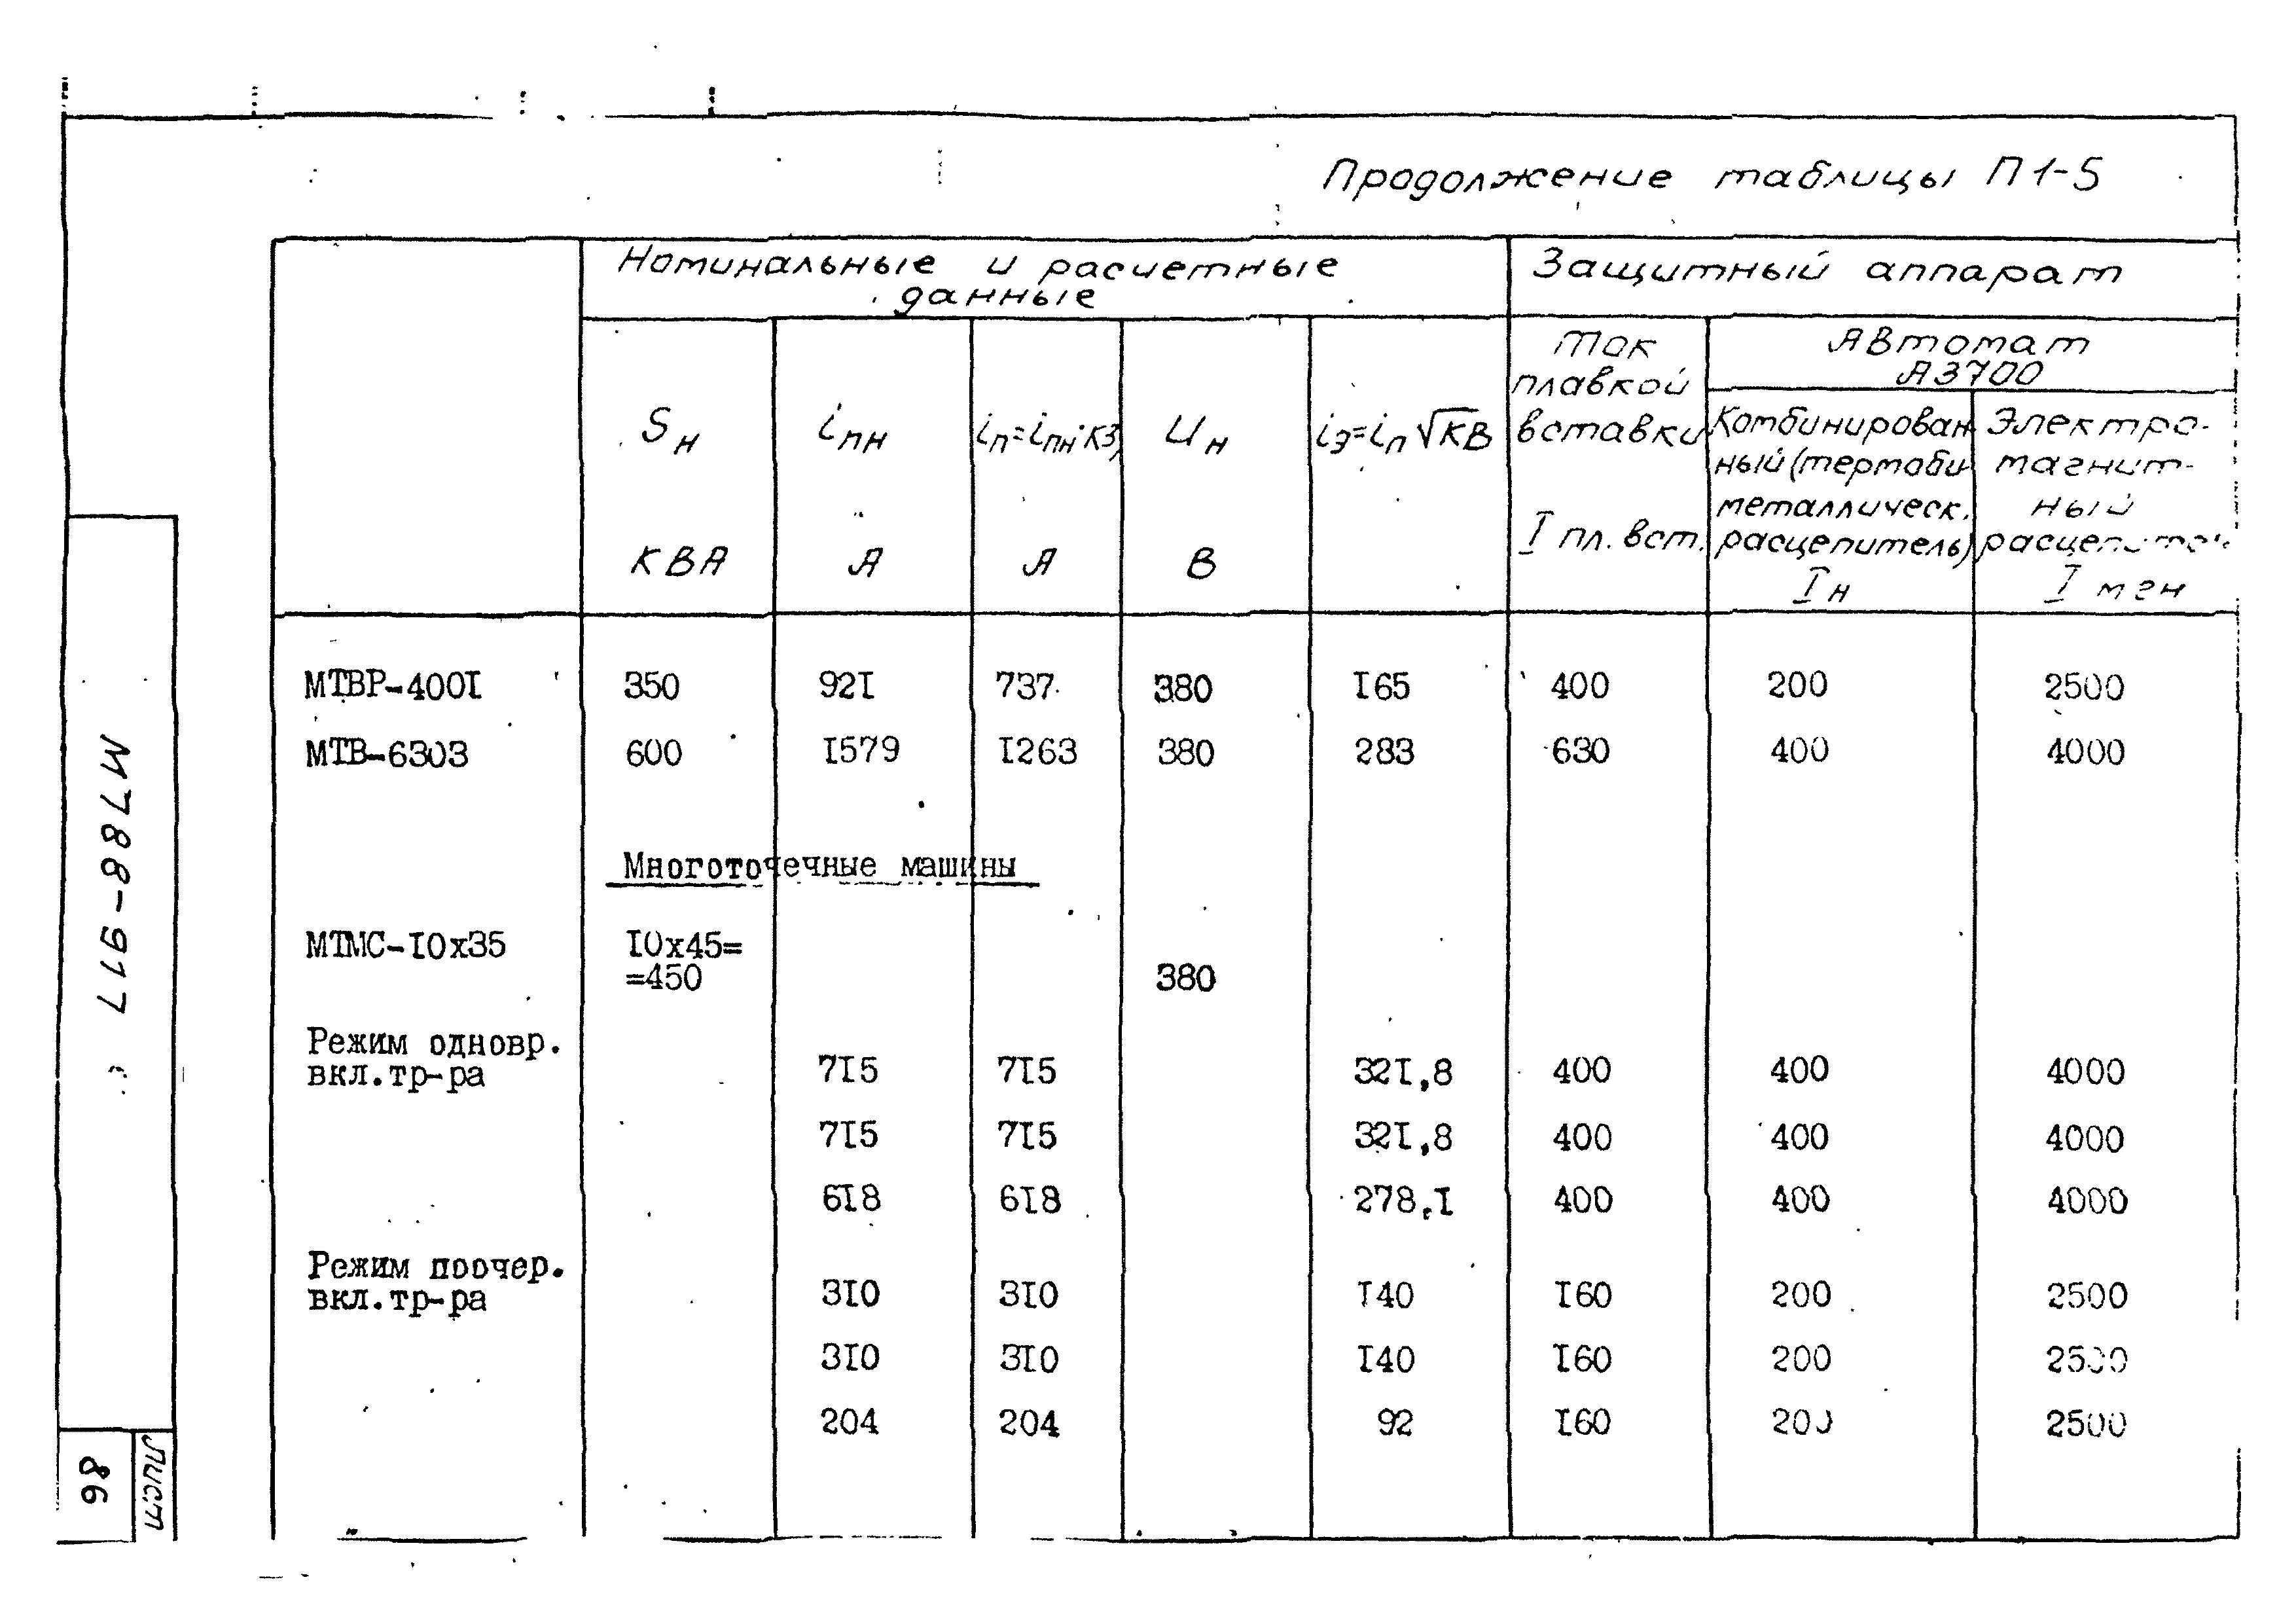 Продолжение таблицы П1-5
Номинальные и расчетные
данные
Защитный аппарат
Sн
КВА
iпн
А
iп=iпн·КЗ,
А
Uн
В
iэ=iп√КВ
Ток
плавкой
вставки
I пл. вст.
Автомат
А3700
Комбинирован
ный (термоби
металлическ.
расцепитель)
Iн
Электро-
магнит-
ный
I мгн
МТВР-400I 350 92I 737 380 I65 400 200 2500
МТВ-6303 600 I579 I263 380 283 630 400 4000
Многоточечные машины
МТМС-I0х35 I0х45=
=450 380
Режим одновр.
вкл.тр-ра 7I5 7I5 32I,8 400 400 4000
7I5 7I5 32I,8 400 400 4000
6I8 6I8 278,I 400 400 4000
Режим поочер.
вкл.тр-ра 3I0 3I0 I40 I60 200 2500
3I0 3I0 I40 I60 200 2500
204 204 92 I60 200 2500
М788-977
Лист
86